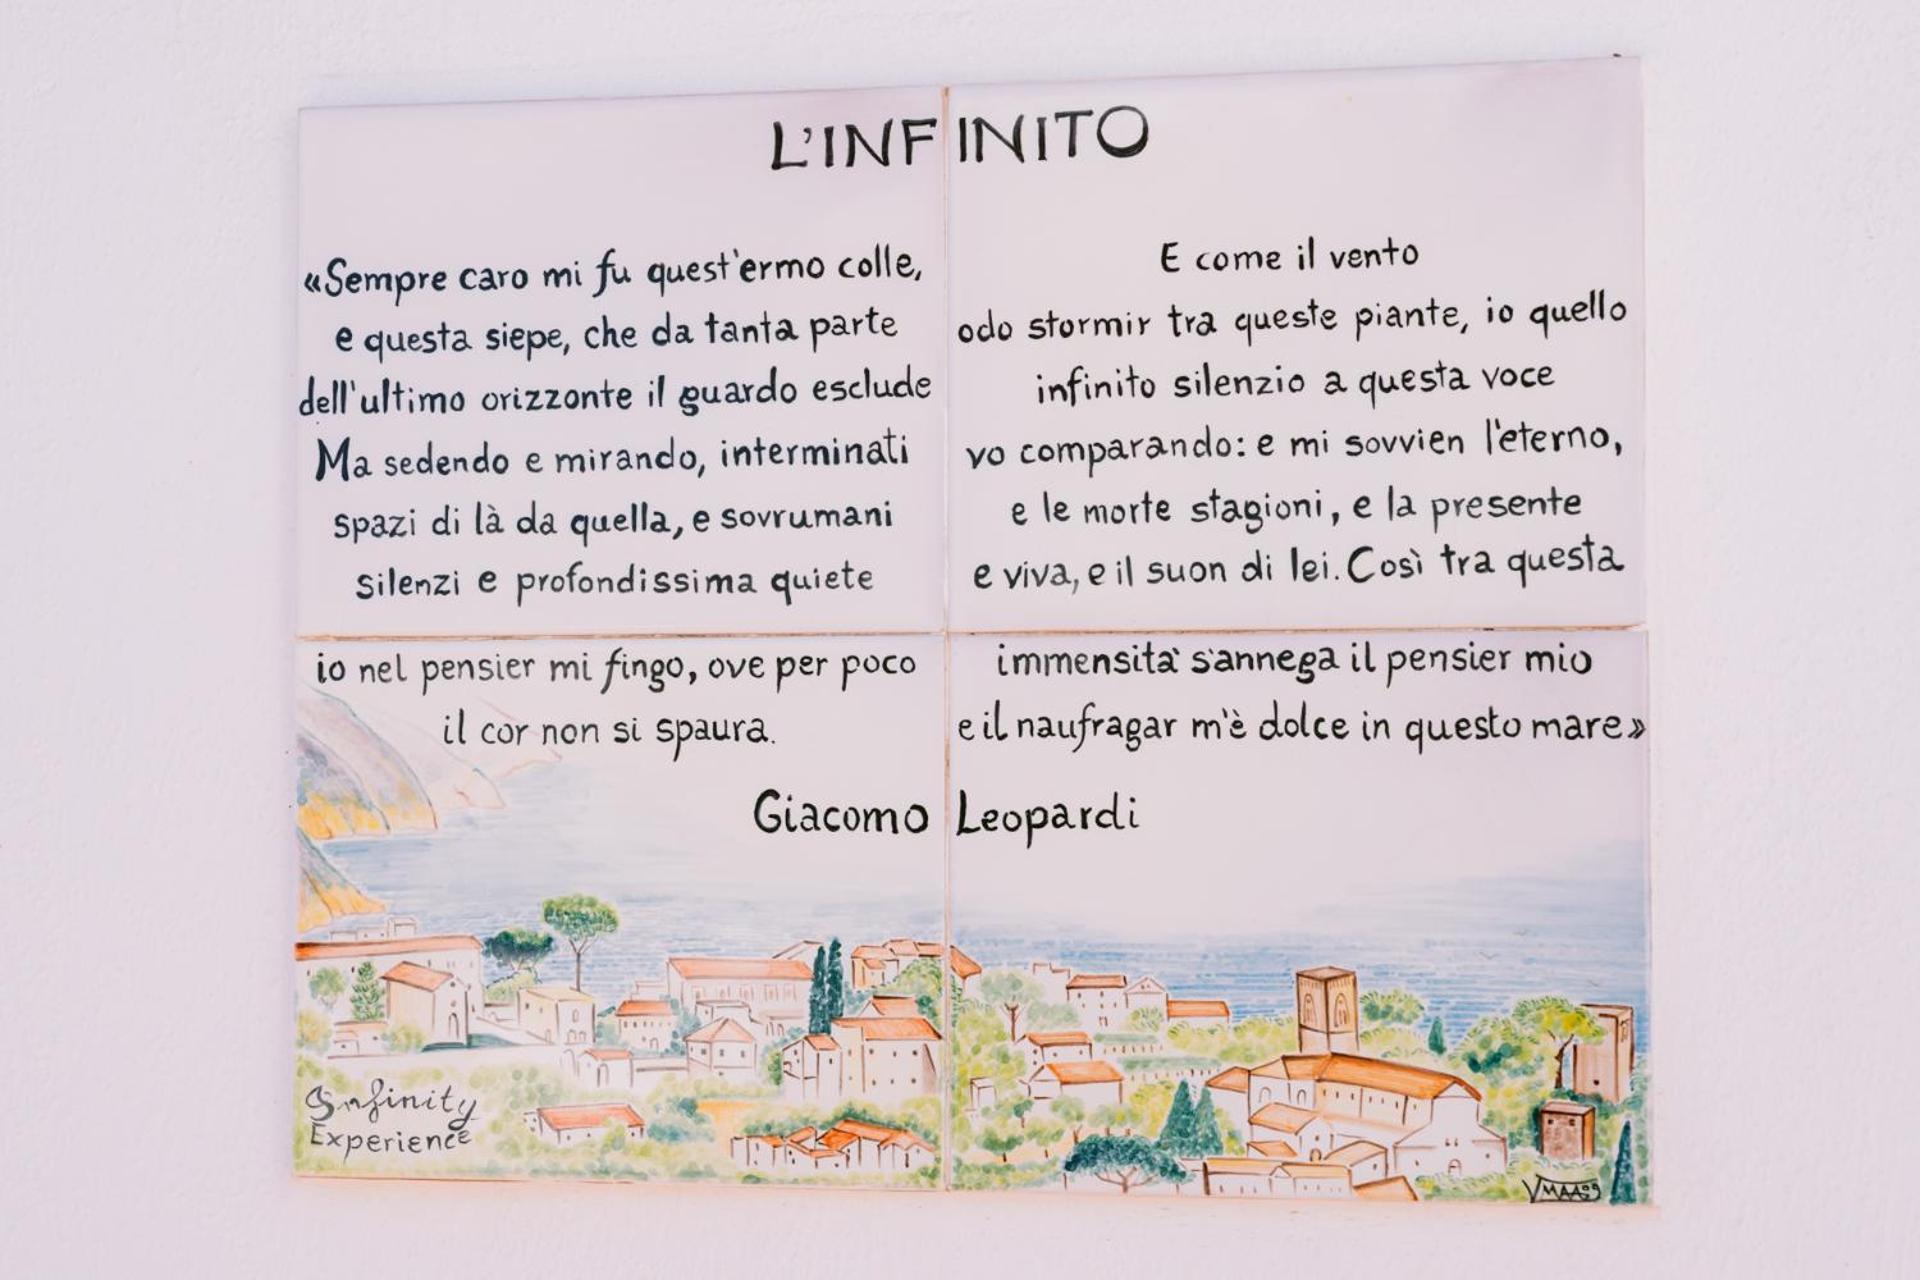 L'INFINITO
«Sempre caro mi fu quest'ermo colle,
e questa siepe, che da tanta parte
dell'ultimo orizzonte il guardo esclude
Ma sedendo e mirando, interminati
spazi di là da quella, e sovrumani
silenzi e profondissima quiete
io nel pensier mi fingo, ove per poco
il cor non si spaura.
E come il vento
odo stormir tra queste piante, io quello
infinito silenzio a questa voce
vo comparando: e mi sovvien l'eterno,
e le morte stagioni, e la presente
e viva, e il suon di lei. Così tra questa
immensità s'annega il pensier mio
e il naufragar m'è dolce in questo mare»
Giacomo Leopardi
Infinity
Experience